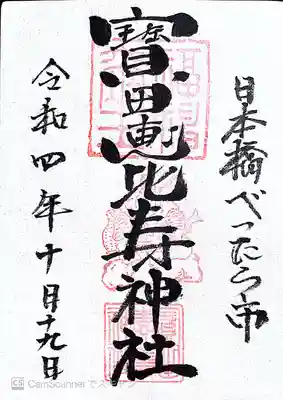 日本橋べったら市
寶田恵比寿神社
令和四年十月十九日
CS CamScanner でスキャン